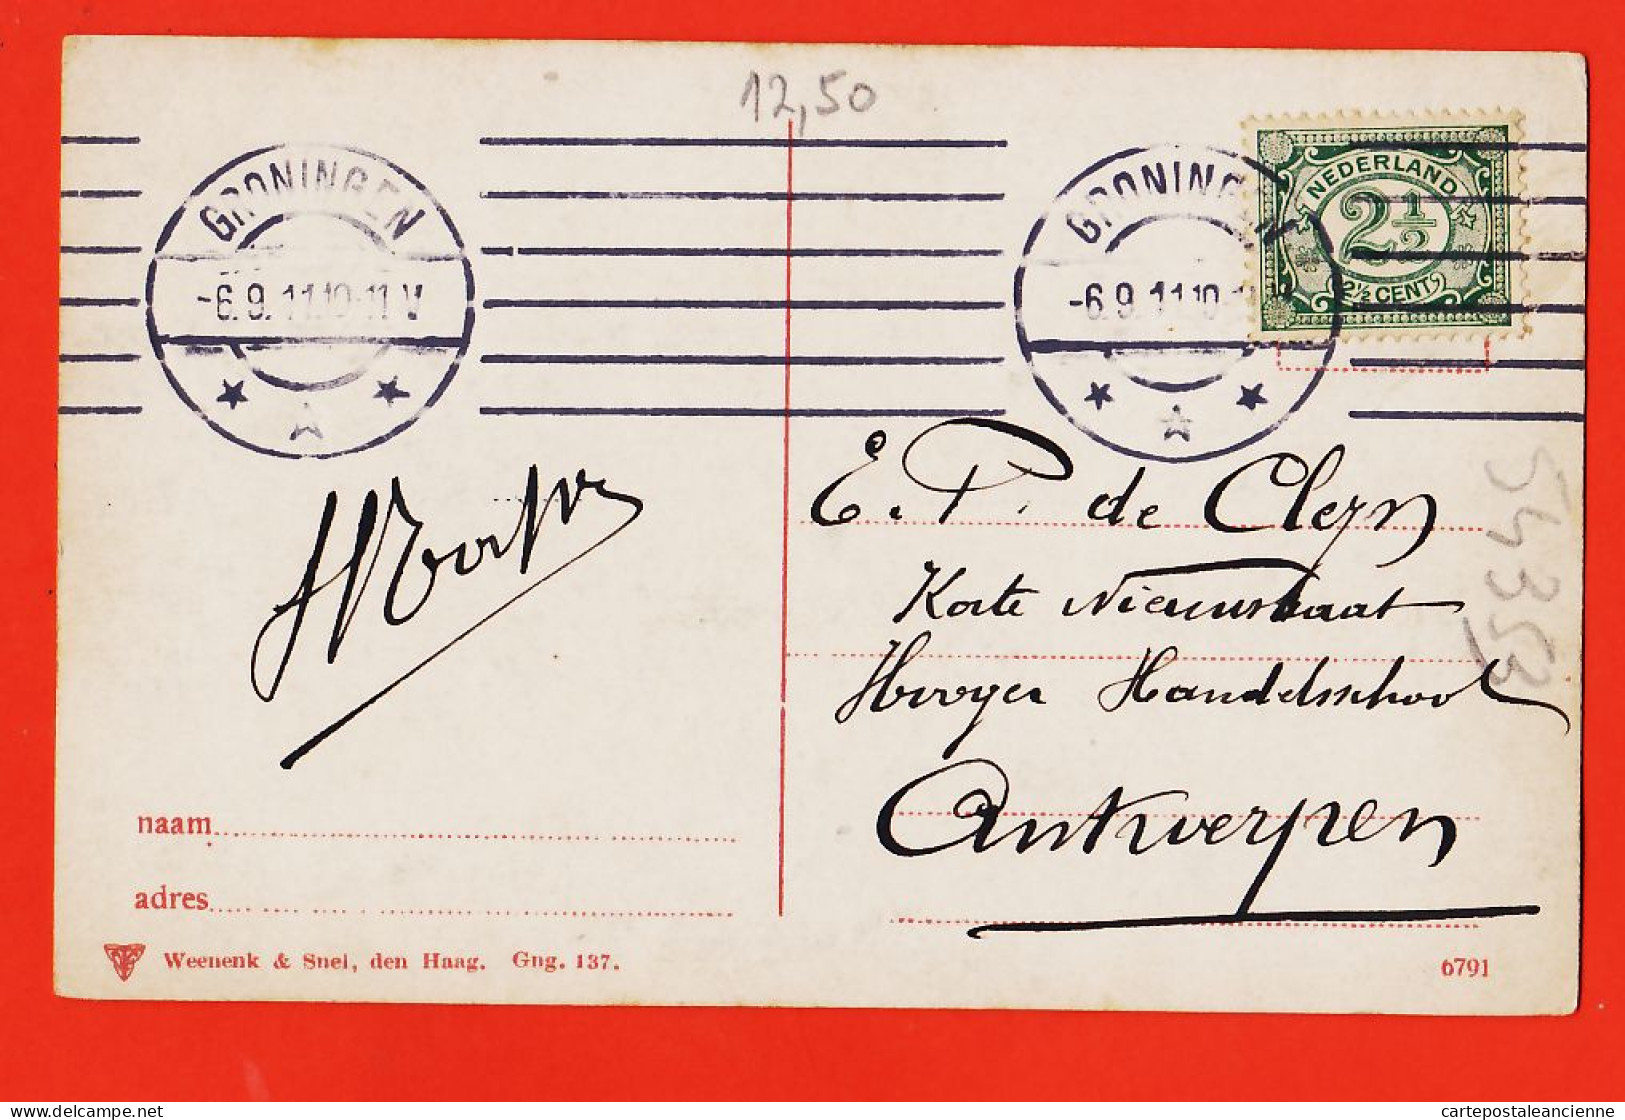 12,50
GRONINGEN
-6.9.11.10-11.V
GRONINGEN
-6.9.11.10-1
NEDERLAND
2½
2½ CENT
54353
E. P. de Cleyn
Korte Nieuwstraat
Hooger Handelsschool
Antwerpen
naam
adres
Weenenk & Snel, den Haag. Gng. 137.
6791
cartepostaleancienne